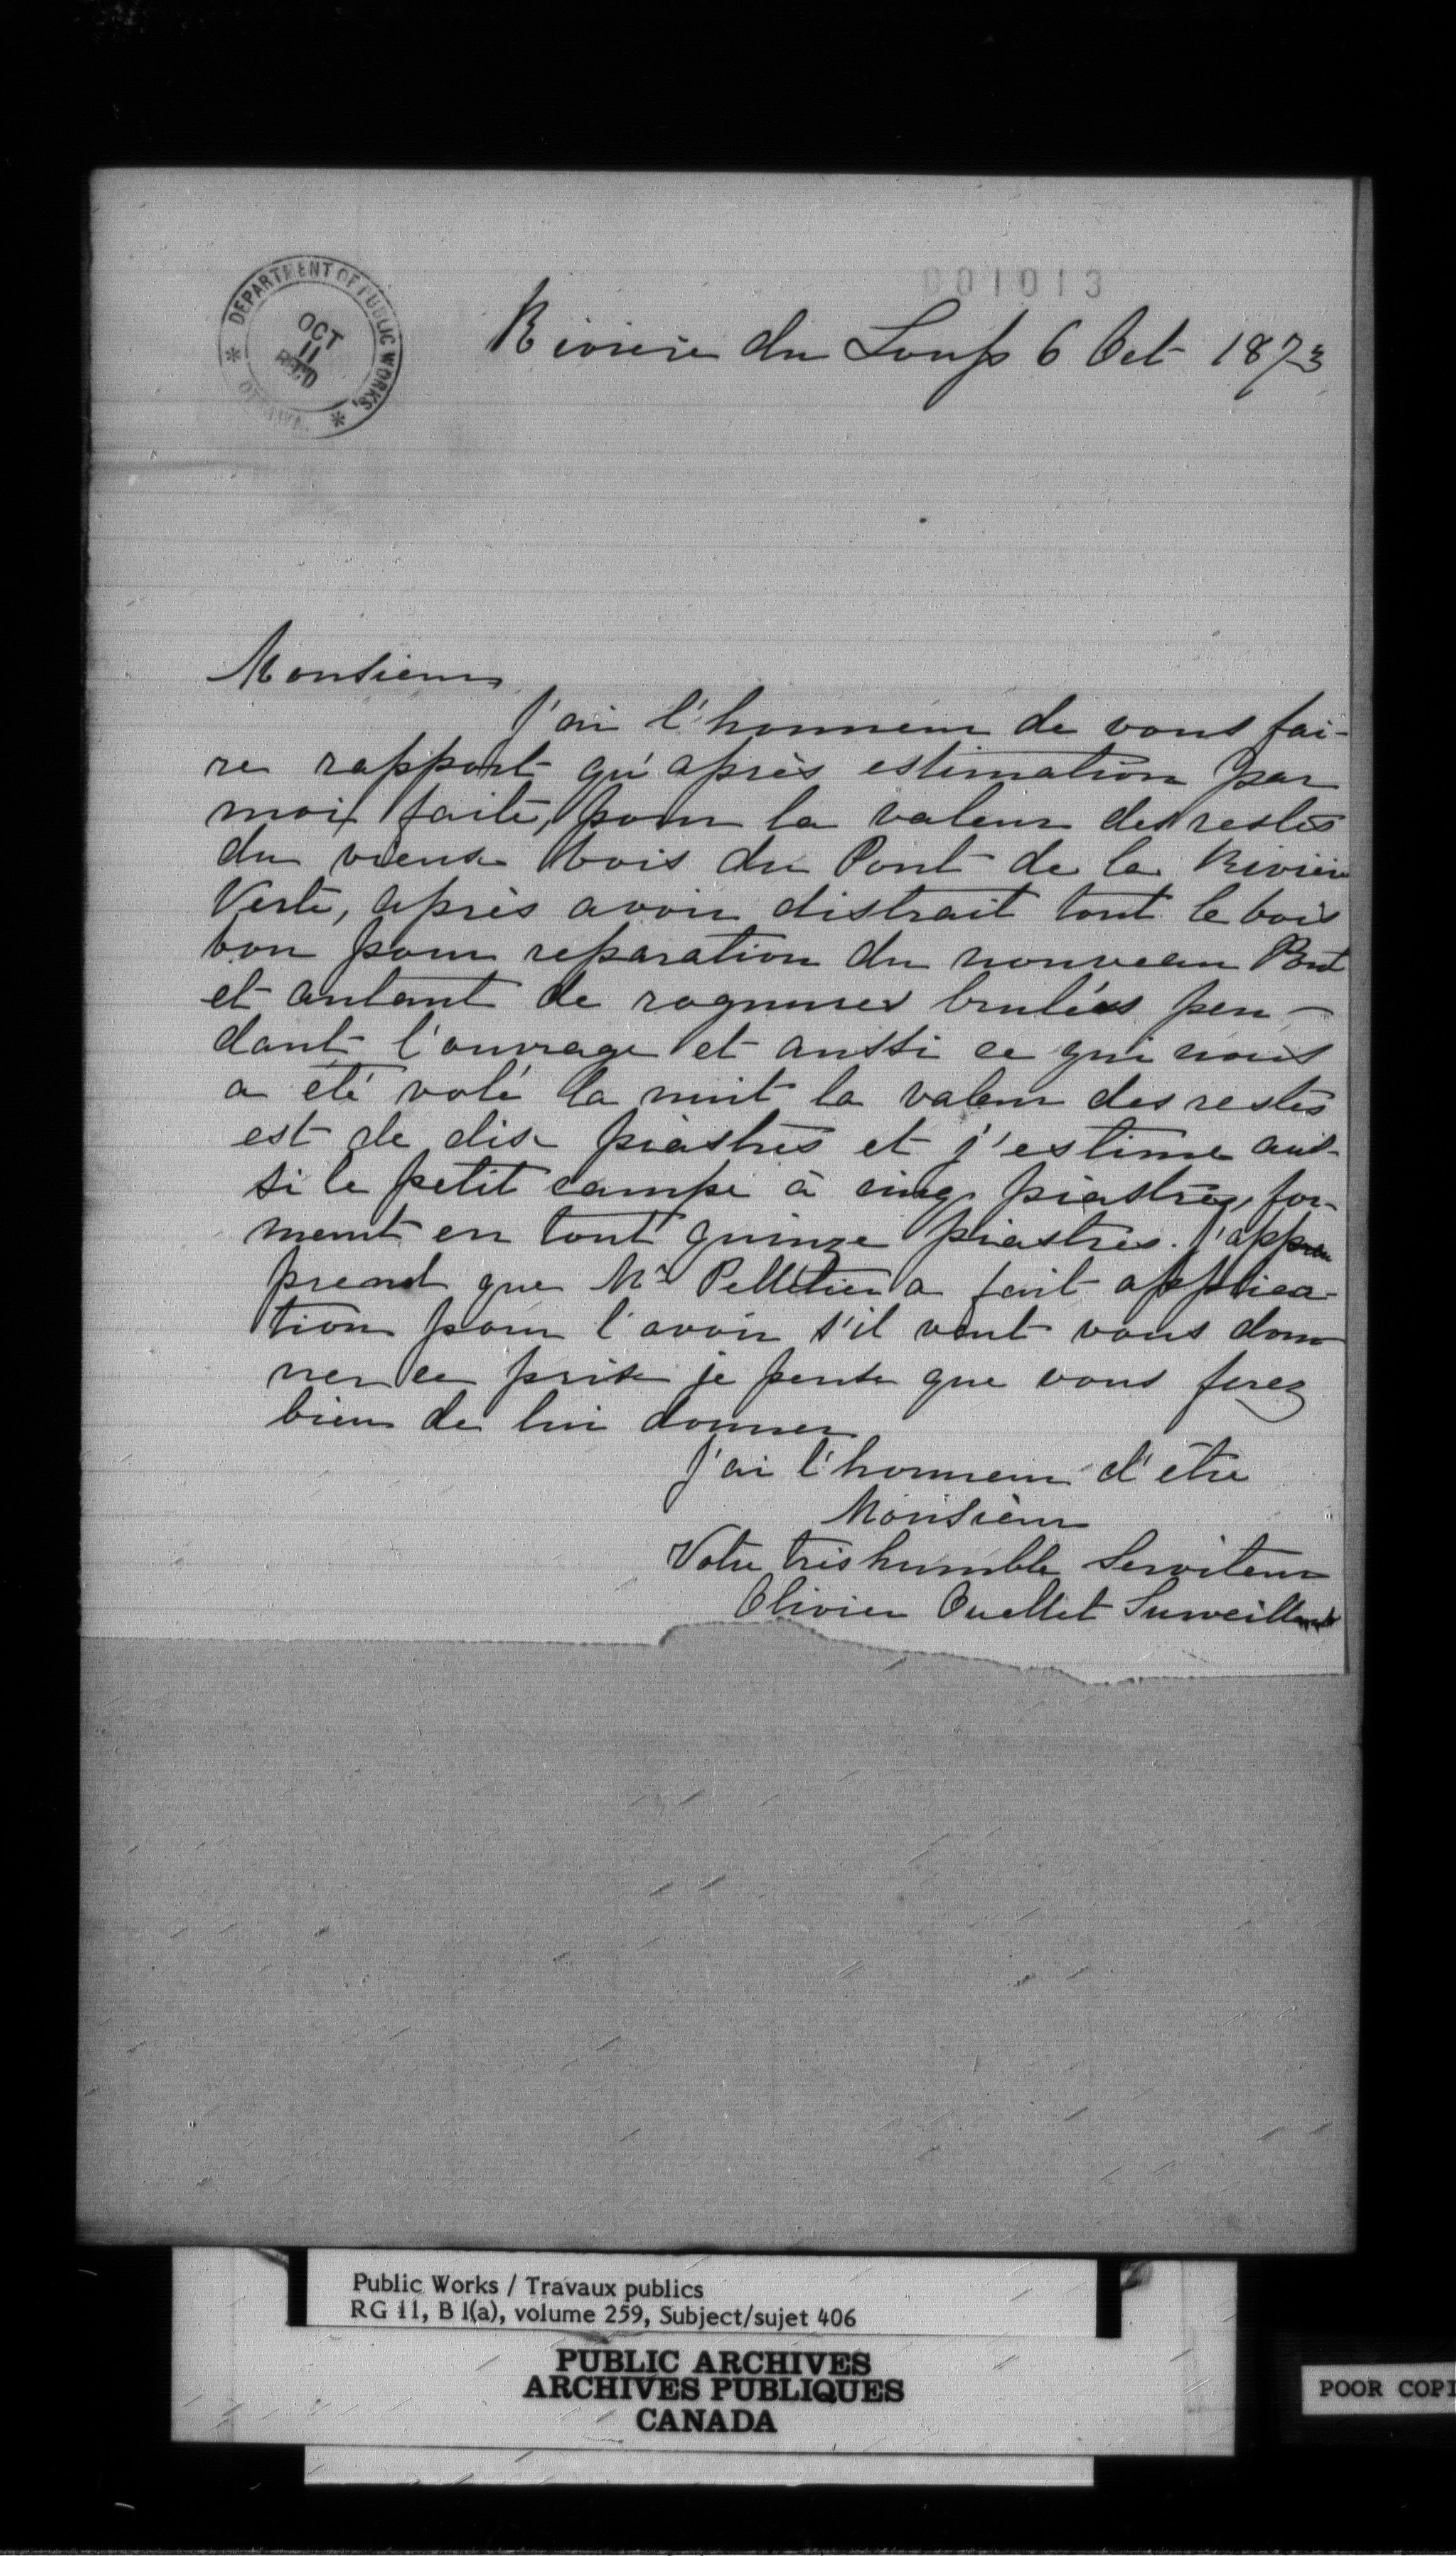 001013
DEPARTMENT OF PUBLIC WORKS,
OCT
11
REC'D
OTTAWA
Riviere du Loup 6 Oct 1873
Monsieur
J'ai l'honneur de vous fai-
re rapport qu'après estimation par
moi faite, pour la valeur des restes
du vieux bois du Pont de la Rivière
Verte, après avoir distrait tout le bois
bon pour reparation du nouveau Pont
et autant de rognures brulées pen-
dant l'ouvrage et aussi ce qui nous
a été volé la nuit la valeur des restes
est de dix piastres et j'estime aus-
si le petit campe à cinq piastres, for-
ment en tout quinze piastres. J'appren
prend que Mr Pelletier a fait applica-
tion pour l'avoir s'il veut vous don-
ner ce prix je pense que vous ferez
bien de lui donner
J'ai l'honneur d'être
Monsieur
Votre tres humble Serviteur
Olivier Ouellet Surveillant
Public Works / Travaux publics
RG 11, B 1(a), volume 259, Subject/sujet 406
PUBLIC ARCHIVES
ARCHIVES PUBLIQUES
CANADA
POOR COPI